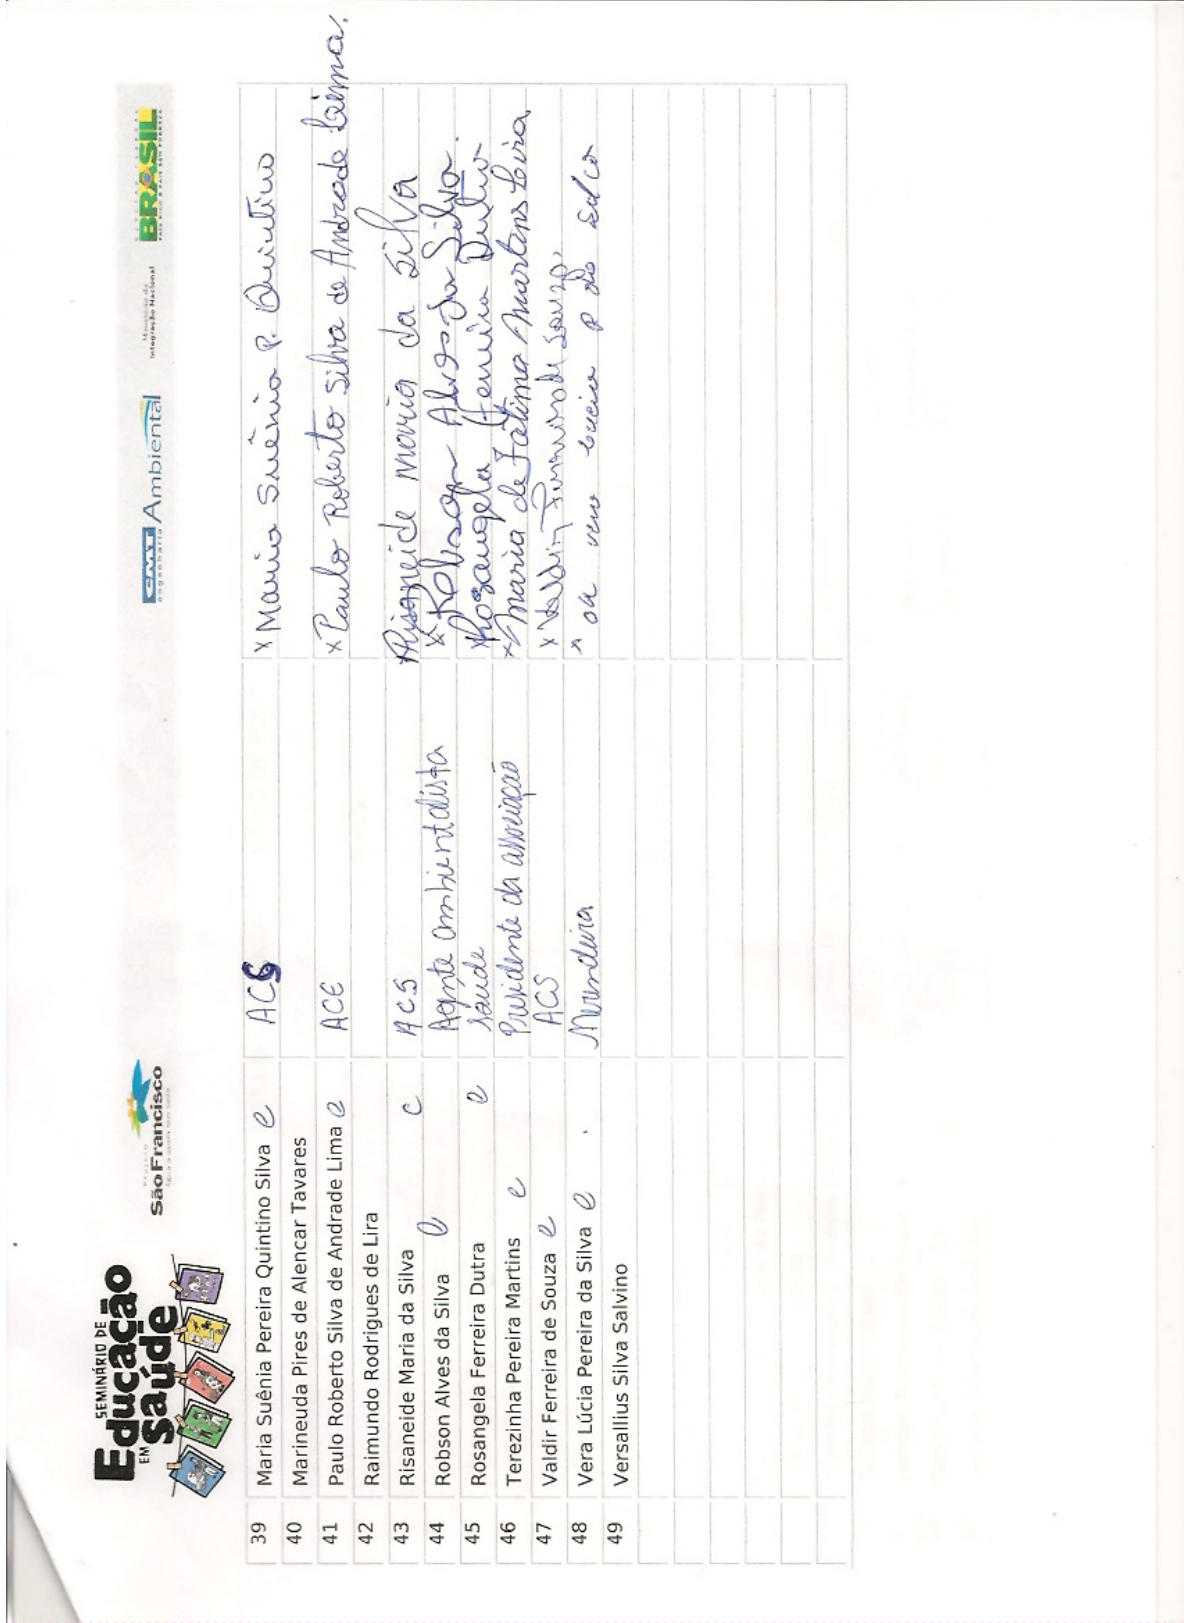 SEMINÁRIO DE
Educação
EM saúde
Projeto
São Francisco
CMT Ambiental
engenharia
Ministério da
Integração Nacional
BRASIL
39 Maria Suênia Pereira Quintino Silva e ACS x Maria Suênia P. Quintino
40 Marineuda Pires de Alencar Tavares
41 Paulo Roberto Silva de Andrade Lima e ACE x Paulo Roberto Silva de Andrade Leima.
42 Raimundo Rodrigues de Lira
43 Risaneide Maria da Silva c ACS x Risaneide maria da Silva
44 Robson Alves da Silva e Agente ambientalista x Robson Alves da Silva.
45 Rosangela Ferreira Dutra e saúde x Rozangela Ferreira Dutra
46 Terezinha Pereira Martins e Presidente da associação x Maria de Fátima Martins Leira
47 Valdir Ferreira de Souza e ACS x Valdir Ferreira de Souza.
48 Vera Lúcia Pereira da Silva e Merendeira x
49 Versallius Silva Salvino